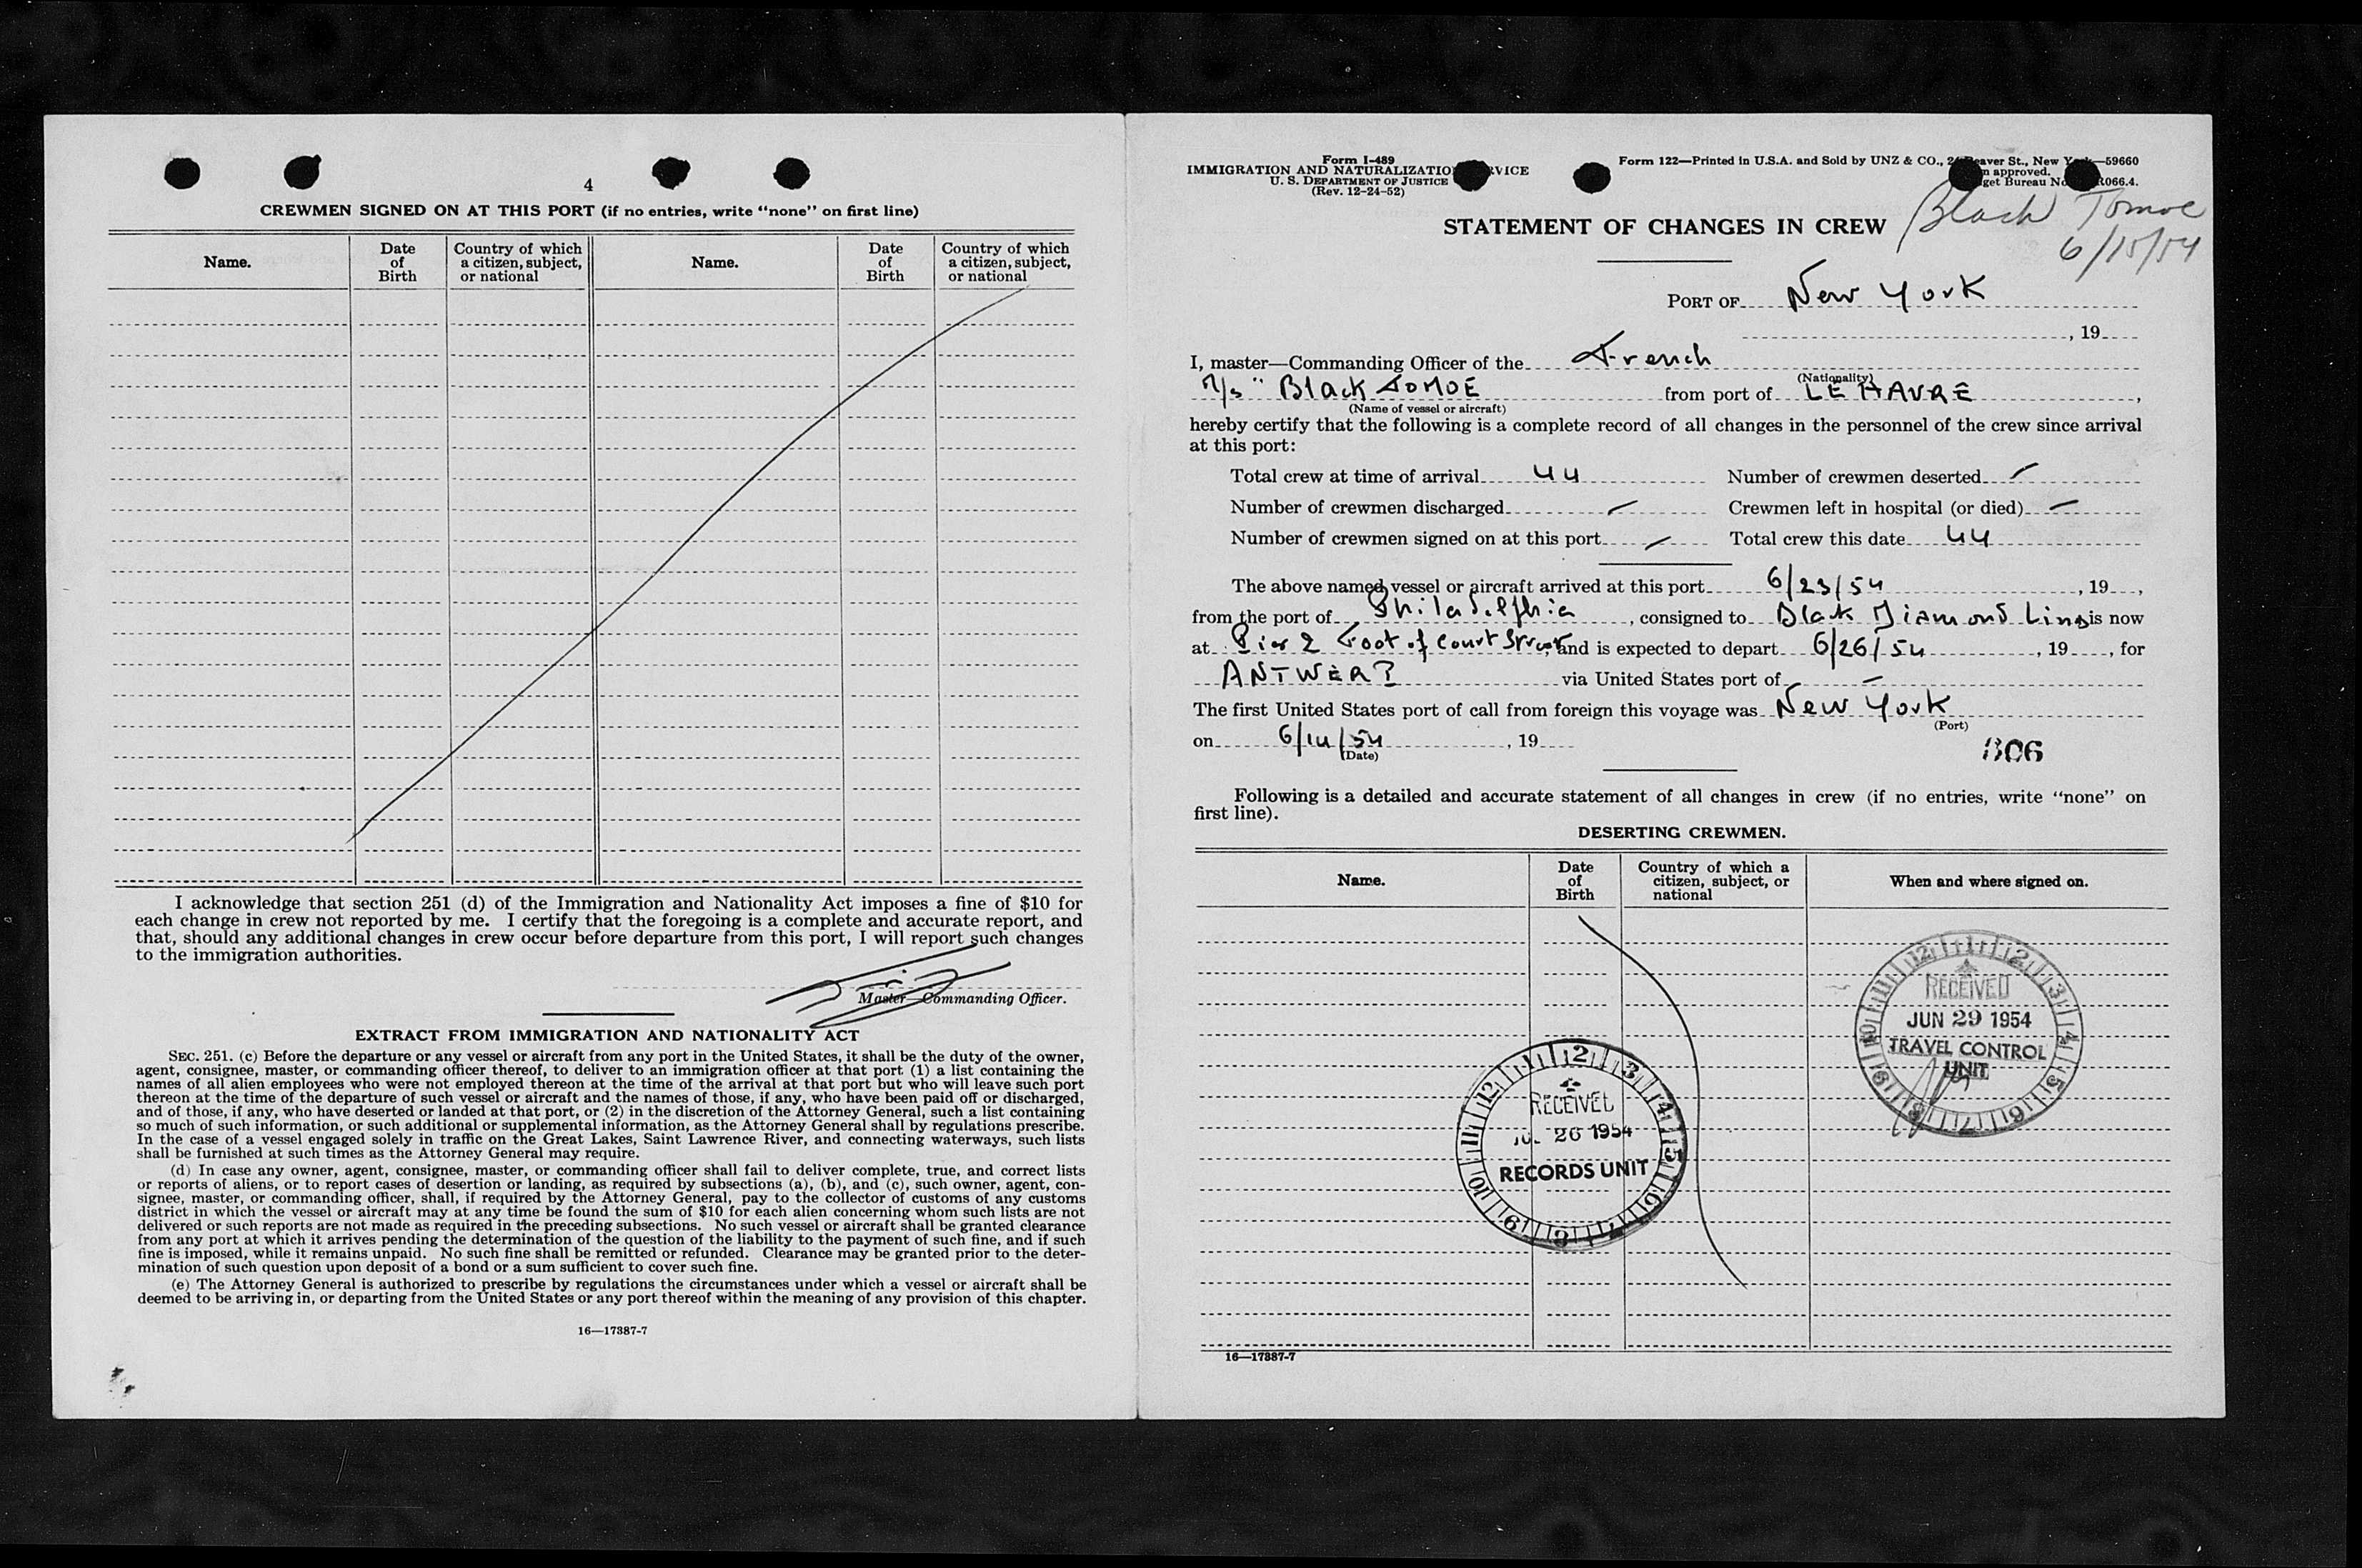 4
CREWMEN SIGNED ON AT THIS PORT (if no entries, write "none" on first line)
Name. Date of Birth Country of which a citizen, subject, or national Name. Date of Birth Country of which a citizen, subject, or national
I acknowledge that section 251 (d) of the Immigration and Nationality Act imposes a fine of $10 for
each change in crew not reported by me. I certify that the foregoing is a complete and accurate report, and
that, should any additional changes in crew occur before departure from this port, I will report such changes
to the immigration authorities.
Master—Commanding Officer.
EXTRACT FROM IMMIGRATION AND NATIONALITY ACT
SEC. 251. (c) Before the departure or any vessel or aircraft from any port in the United States, it shall be the duty of the owner,
agent, consignee, master, or commanding officer thereof, to deliver to an immigration officer at that port (1) a list containing the
names of all alien employees who were not employed thereon at the time of the arrival at that port but who will leave such port
thereon at the time of the departure of such vessel or aircraft and the names of those, if any, who have been paid off or discharged,
and of those, if any, who have deserted or landed at that port, or (2) in the discretion of the Attorney General, such a list containing
so much of such information, or such additional or supplemental information, as the Attorney General shall by regulations prescribe.
In the case of a vessel engaged solely in traffic on the Great Lakes, Saint Lawrence River, and connecting waterways, such lists
shall be furnished at such times as the Attorney General may require.
(d) In case any owner, agent, consignee, master, or commanding officer shall fail to deliver complete, true, and correct lists
or reports of aliens, or to report cases of desertion or landing, as required by subsections (a), (b), and (c), such owner, agent, con-
signee, master, or commanding officer, shall, if required by the Attorney General, pay to the collector of customs of any customs
district in which the vessel or aircraft may at any time be found the sum of $10 for each alien concerning whom such lists are not
delivered or such reports are not made as required in the preceding subsections. No such vessel or aircraft shall be granted clearance
from any port at which it arrives pending the determination of the question of the liability to the payment of such fine, and if such
fine is imposed, while it remains unpaid. No such fine shall be remitted or refunded. Clearance may be granted prior to the deter-
mination of such question upon deposit of a bond or a sum sufficient to cover such fine.
(e) The Attorney General is authorized to prescribe by regulations the circumstances under which a vessel or aircraft shall be
deemed to be arriving in, or departing from the United States or any port thereof within the meaning of any provision of this chapter.
16—17387-7
Form I-489
IMMIGRATION AND NATURALIZATIO VICE
U. S. DEPARTMENT OF JUSTICE
(Rev. 12-24-52)
Form 122—Printed in U.S.A. and Sold by UNZ & CO., 2 eaver St., New Y —59660
n approved.
get Bureau No R066.4.
Black Tomoe
6/15/54
STATEMENT OF CHANGES IN CREW
PORT OF New York
, 19
I, master—Commanding Officer of the French
(Nationality)
M/s " Black TOMOE from port of LE HAVRE,
(Name of vessel or aircraft)
hereby certify that the following is a complete record of all changes in the personnel of the crew since arrival
at this port:
Total crew at time of arrival 44 Number of crewmen deserted —
Number of crewmen discharged — Crewmen left in hospital (or died) —
Number of crewmen signed on at this port — Total crew this date 44
The above named vessel or aircraft arrived at this port 6/23/54, 19 ,
from the port of Philadelphia, consigned to Black Diamond Lines is now
at Pier 2 Foot of Court Street, and is expected to depart 6/26/54, 19 , for
ANTWERP via United States port of —
The first United States port of call from foreign this voyage was New York
(Port)
on 6/14/54, 19
(Date)
306
Following is a detailed and accurate statement of all changes in crew (if no entries, write "none" on
first line).
DESERTING CREWMEN.
Name. Date of Birth Country of which a citizen, subject, or national When and where signed on.
12 1 2 3 4 5 6 7 8 9 10 11
RECEIVED
JUN 29 1954
TRAVEL CONTROL
UNIT
12 1 2 3 4 5 6 7 8 9 10 11
RECEIVED
26 1954
RECORDS UNIT
16—17387-7